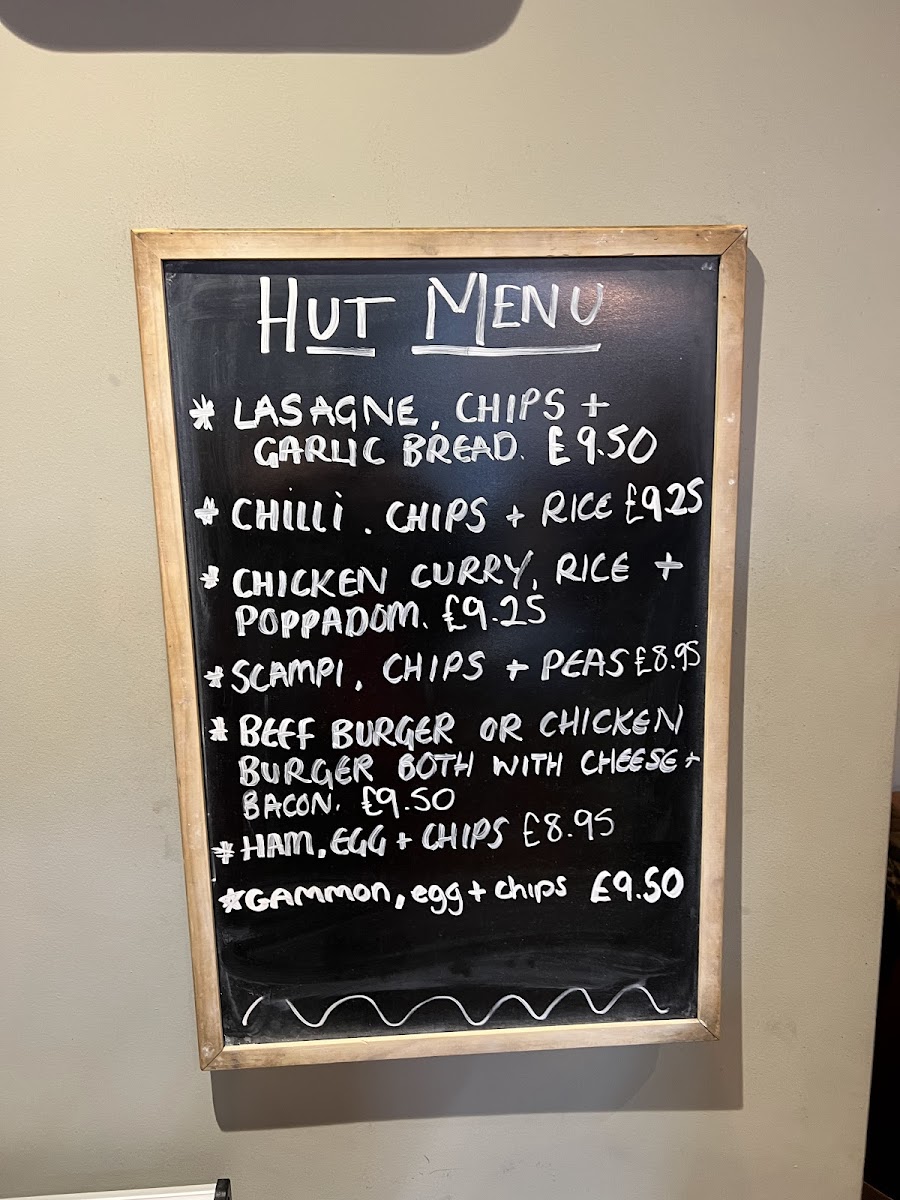 HUT MENU
* LASAGNE, CHIPS +
GARLIC BREAD. £9.50
* CHILLI. CHIPS + RICE £9.25
* CHICKEN CURRY, RICE +
POPPADOM. £9.25
* SCAMPI, CHIPS + PEAS £8.95
* BEEF BURGER OR CHICKEN
BURGER BOTH WITH CHEESE +
BACON. £9.50
* HAM, EGG + CHIPS £8.95
* GAMMON, egg + chips £9.50